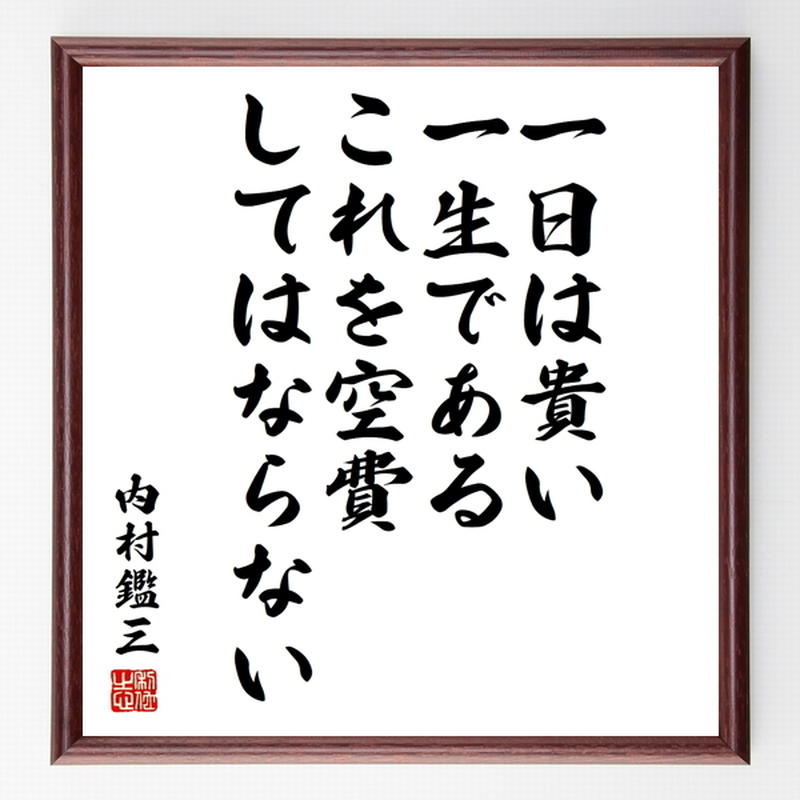 一日は貴い
一生である
これを空費
してはならない
内村鑑三